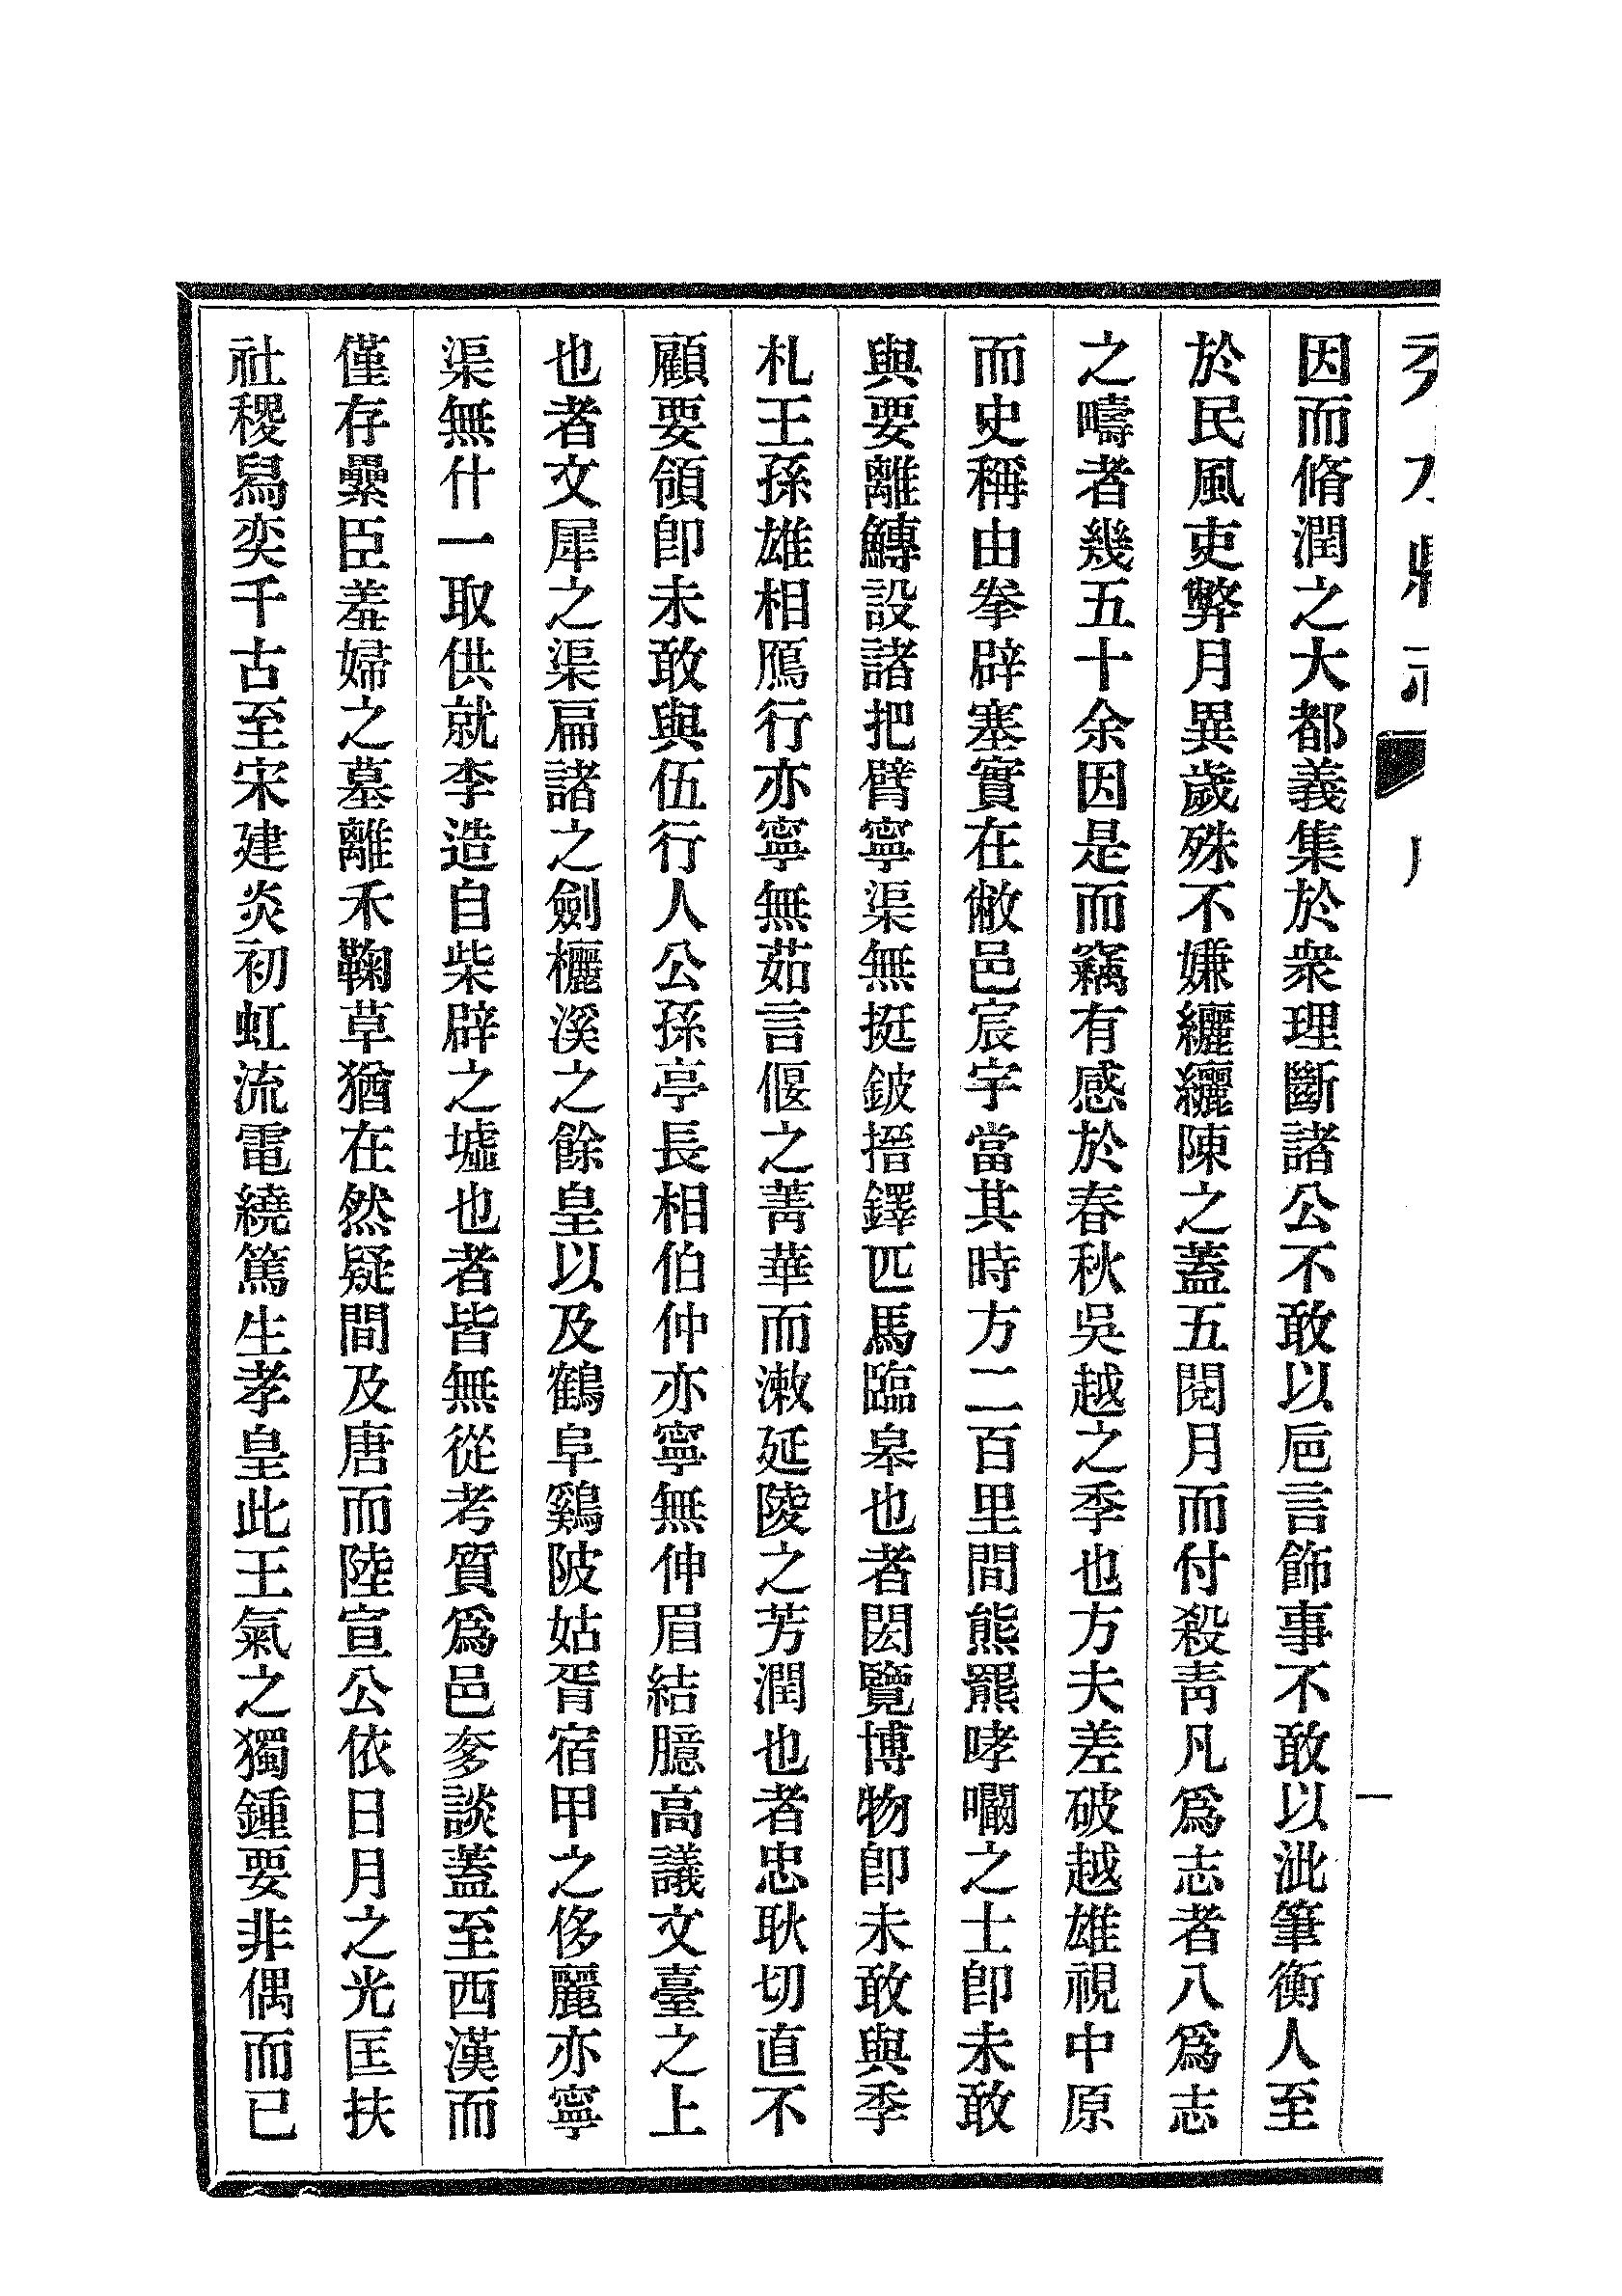 因而脩潤之大都義集於衆理斷諸公不敢以巵言飾事不敢以泚筆衡人至
於民風吏弊月異歲殊不嫌纚纚陳之蓋五閱月而付殺靑凡爲志者八爲志
之疇者幾五十余因是而竊有感於春秋吳越之季也方夫差破越雄視中原
而史稱由拳辟塞實在敝邑宸宇當其時方二百里間熊羆哮嚪之士卽未敢
與要離鱄設諸把臂寧渠無挺鈹搢鐸匹馬臨皋也者閎覽博物卽未敢與季
札王孫雄相鴈行亦寧無茹言偃之菁華而漱延陵之芳潤也者忠耿切直不
顧要領卽未敢與伍行人公孫亭長相伯仲亦寧無伸眉結臆高議文臺之上
也者文犀之渠扁諸之劍欐溪之餘皇以及鶴阜鷄陂姑胥宿甲之侈麗亦寧
渠無什一取供就李造自柴辟之墟也者皆無從考質爲邑奓談蓋至西漢而
僅存纍臣羞婦之墓離禾鞠草猶在然疑間及唐而陸宣公依日月之光匡扶
社稷舄奕千古至宋建炎初虹流電繞篤生孝皇此王氣之獨鍾要非偶而已
一